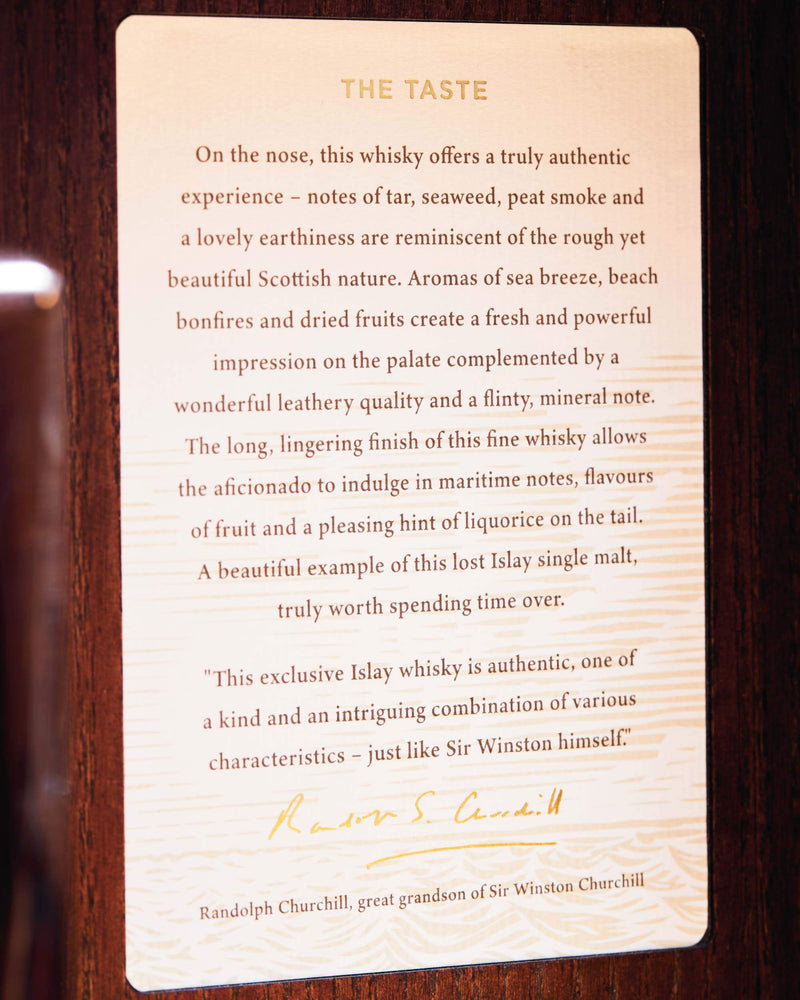 THE TASTE
On the nose, this whisky offers a truly authentic
experience – notes of tar, seaweed, peat smoke and
a lovely earthiness are reminiscent of the rough yet
beautiful Scottish nature. Aromas of sea breeze, beach
bonfires and dried fruits create a fresh and powerful
impression on the palate complemented by a
wonderful leathery quality and a flinty, mineral note.
The long, lingering finish of this fine whisky allows
the aficionado to indulge in maritime notes, flavours
of fruit and a pleasing hint of liquorice on the tail.
A beautiful example of this lost Islay single malt,
truly worth spending time over.
"This exclusive Islay whisky is authentic, one of
a kind and an intriguing combination of various
characteristics – just like Sir Winston himself."
Randolph S. Churchill
Randolph Churchill, great grandson of Sir Winston Churchill